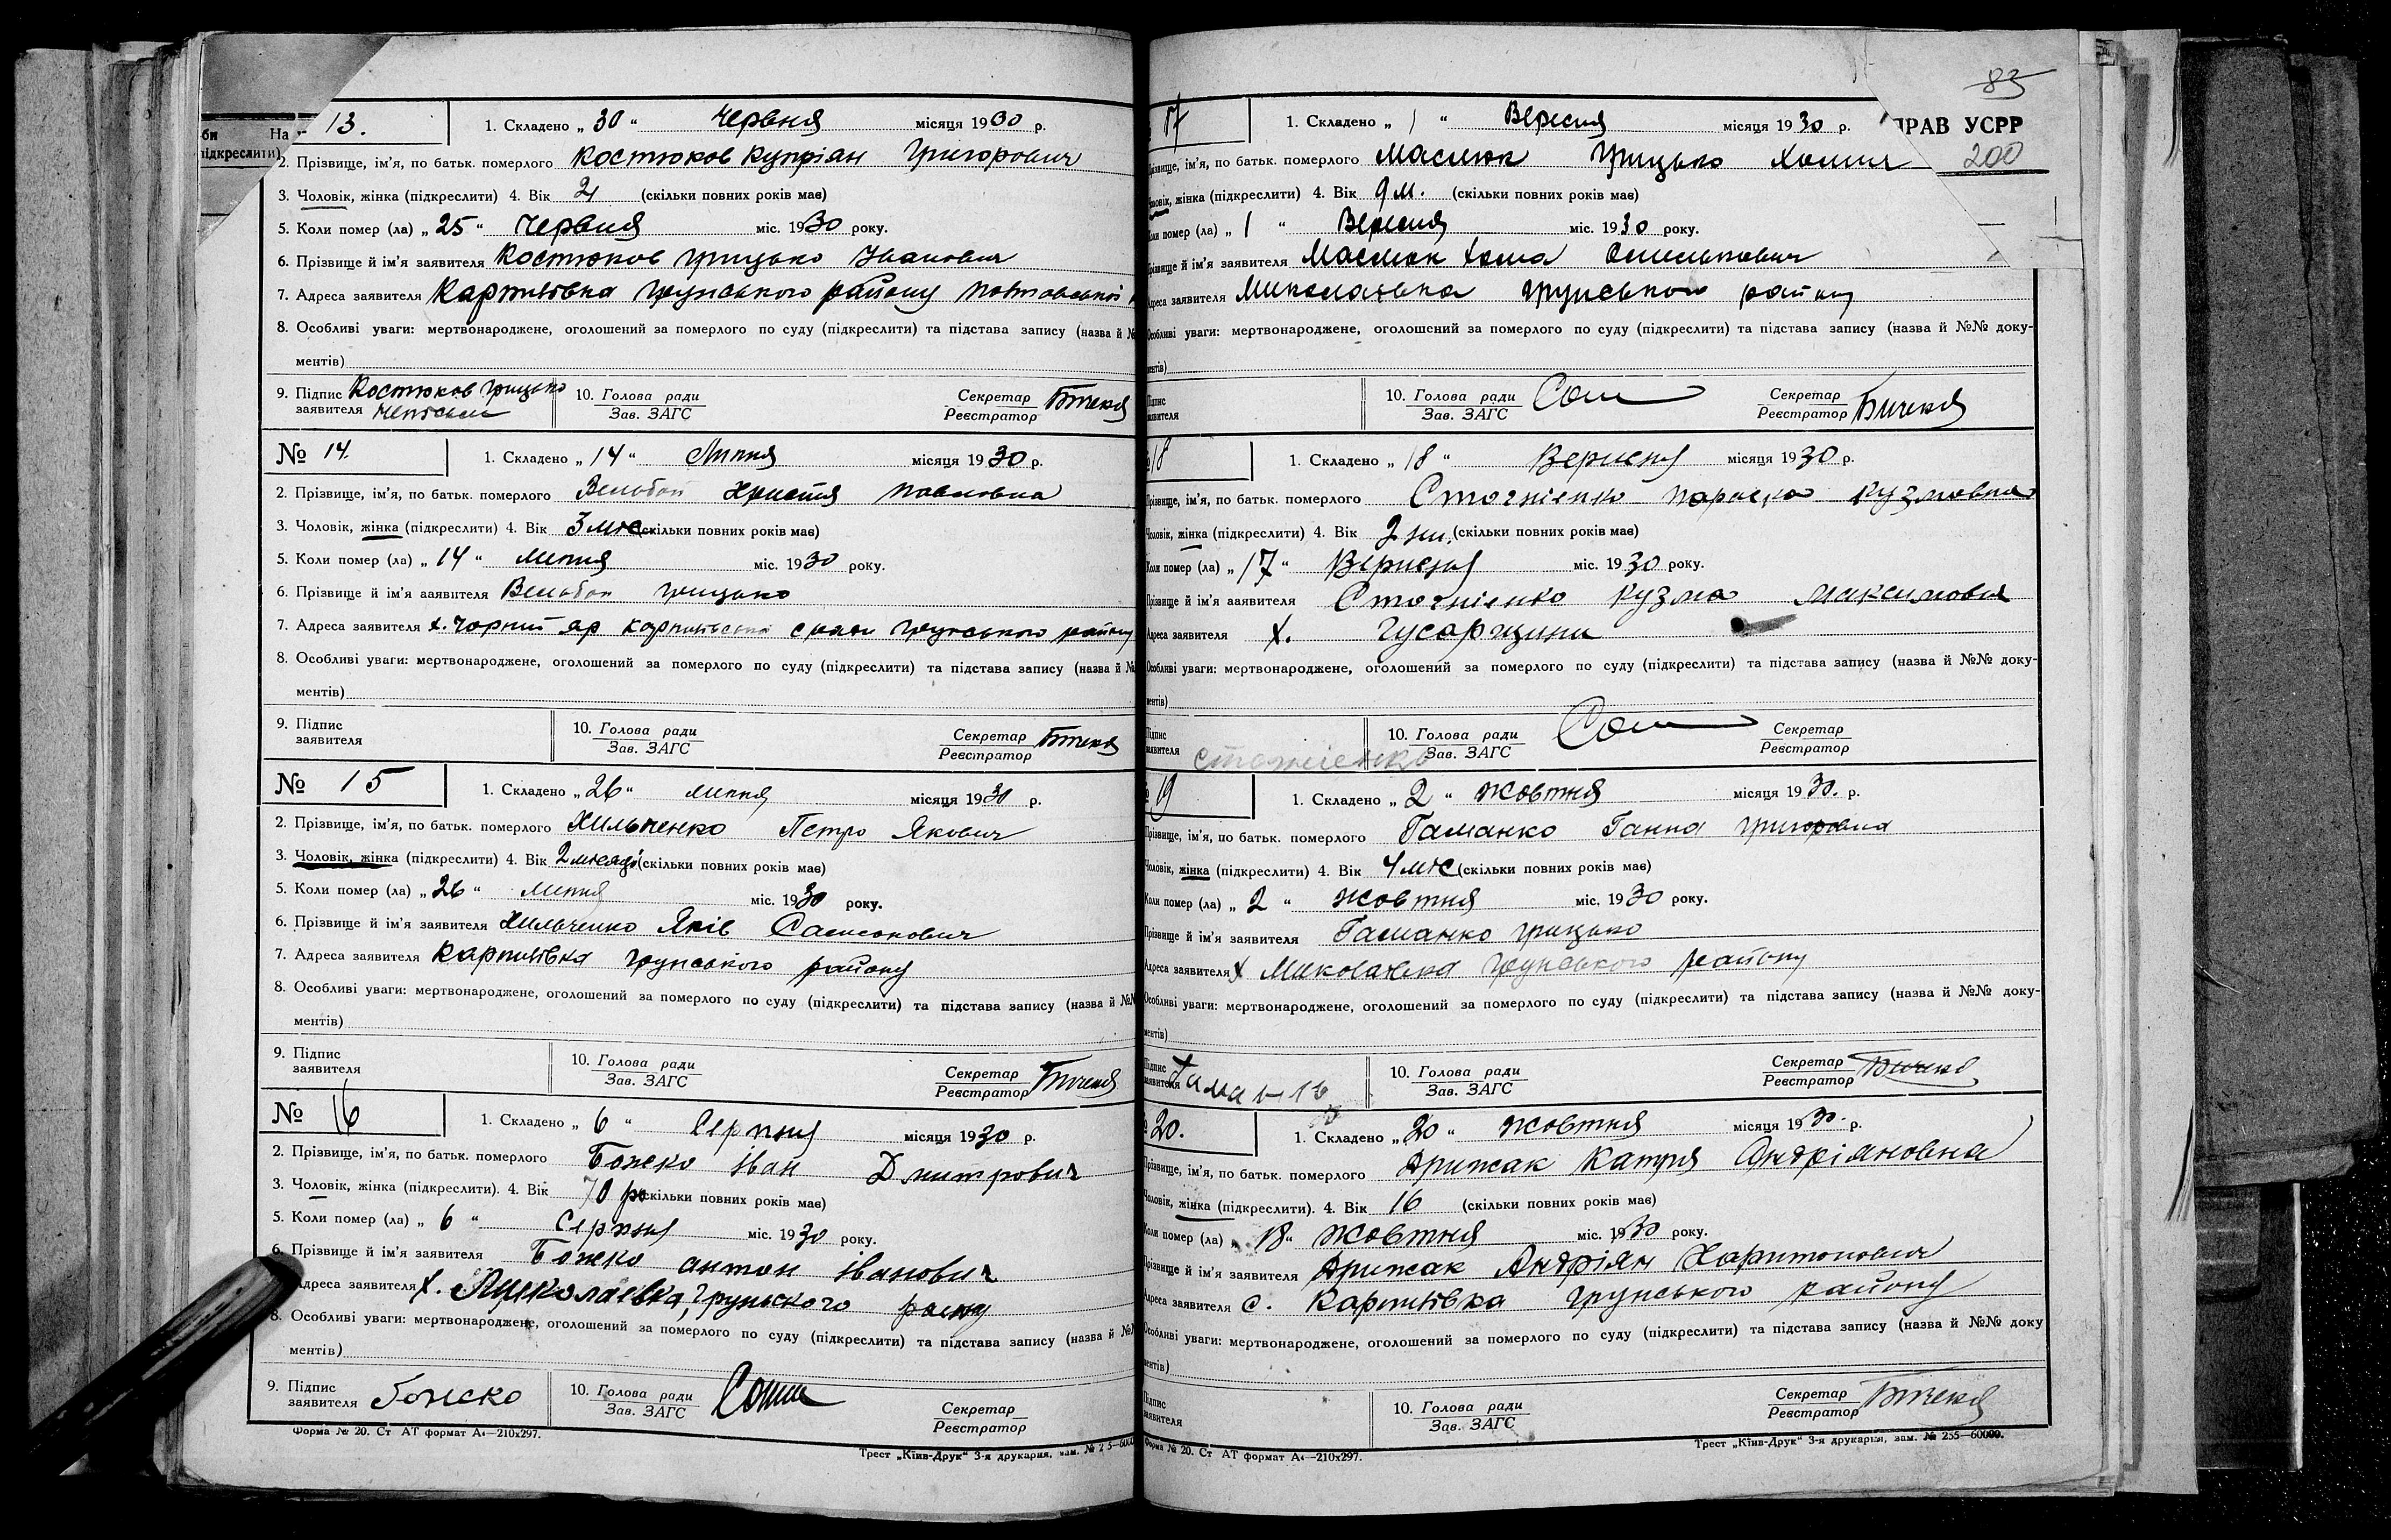 би На
підкреслити)
13. 1. Складено „ 30 “ Червня місяця 1930 р.
2. Прізвище, ім'я, по батьк. померлого Костюков Купріян Григорович
3. Чоловік, жінка (підкреслити) 4. Вік 2 (скільки повних років має)
5. Коли помер (ла) „ 25 “ Червня міс. 1930 року.
6. Прізвище й ім'я заявителя Костюков Грицько Іванович
7. Адреса заявителя Карпилівка Грунського району
8. Особливі уваги: мертвонароджене, оголошений за померлого по суду (підкреслити) та підстава запису (назва й №
ментів)
9. Підпис заявителя Костюков Грицько
10. Голова ради Зав. ЗАГС Секретар Реєстратор
№ 14. 1. Складено „ 14 “ Липня місяця 1930 р.
2. Прізвище, ім'я, по батьк. померлого Вельбой Христя Павловна
3. Чоловік, жінка (підкреслити) 4. Вік 3 міс (скільки повних років має)
5. Коли помер (ла) „ 14 “ Липня міс. 1930 року.
6. Прізвище й ім'я заявителя Вельбой Грицько
7. Адреса заявителя х. Чорний яр Грунського району
8. Особливі уваги: мертвонароджене, оголошений за померлого по суду (підкреслити) та підстава запису (назва й №
ментів)
9. Підпис заявителя
10. Голова ради Зав. ЗАГС Секретар Реєстратор
№ 15 1. Складено „ 26 “ липня місяця 1930 р.
2. Прізвище, ім'я, по батьк. померлого Хильченко Петро Якович
3. Чоловік, жінка (підкреслити) 4. Вік 2 місяці (скільки повних років має)
5. Коли помер (ла) „ 26 “ липня міс. 1930 року.
6. Прізвище й ім'я заявителя Хильченко Яків Самсонович
7. Адреса заявителя Карпилівка Грунського району
8. Особливі уваги: мертвонароджене, оголошений за померлого по суду (підкреслити) та підстава запису (назва й №№
ментів)
9. Підпис заявителя
10. Голова ради Зав. ЗАГС Секретар Реєстратор
№ 16 1. Складено „ 6 “ Серпня місяця 1930 р.
2. Прізвище, ім'я, по батьк. померлого Божко Іван Дмитрович
3. Чоловік, жінка (підкреслити). 4. Вік 70 (скільки повних років має)
5. Коли помер (ла) „ 6 “ Серпня міс. 1930 року.
6. Прізвище й ім'я заявителя Божко Антон Іванович
Адреса заявителя х. Миколаєвка, Грунского
8. Особливі уваги: мертвонароджене, оголошений за померлого по суду (підкреслити) та підстава запису (назва й №№
ментів)
9. Підпис заявителя Божко
10. Голова ради Зав. ЗАГС Секретар Реєстратор
Форма № 20. Ст АТ формат А4—210x297.
Трест „Київ-Друк“ 3-я друкарня,
83
ПРАВ УСРР
200
17 1. Складено „ 1 “ Вересня місяця 1930 р.
Прізвище, ім'я, по батьк. померлого Маслюк Грицько
Чоловік, жінка (підкреслити) 4. Вік 9 м. (скільки повних років має)
Коли помер (ла) „ 1 “ Вересня міс. 1930 року.
Прізвище й ім'я заявителя Маслюк Хома
Адреса заявителя Миколаівка Грунського району
Особливі уваги: мертвонароджене, оголошений за померлого по суду (підкреслити) та підстава запису (назва й №№ доку-
ментів)
Підпис заявителя
10. Голова ради Зав. ЗАГС Секретар Реєстратор
18 1. Складено „ 18 “ місяця 1930 р.
Прізвище, ім'я, по батьк. померлого Стогнієнко Параска Кузмовна
Чоловік, жінка (підкреслити) 4. Вік 2 (скільки повних років має)
Коли помер (ла) „ 17 “ міс. 1930 року.
Прізвище й ім'я заявителя Стогнієнко Кузма Максимович
Адреса заявителя х. Гусарщини
Особливі уваги: мертвонароджене, оголошений за померлого по суду (підкреслити) та підстава запису (назва й №№ доку-
ментів)
Підпис заявителя
10. Голова ради Зав. ЗАГС Секретар Реєстратор
19 1. Складено „ 2 “ жовтня місяця 1930. р.
Прізвище, ім'я, по батьк. померлого Гаманко Ганна Григоровна
Чоловік, жінка (підкреслити) 4. Вік 4 міс (скільки повних років має)
Коли помер (ла) „ 2 “ жовтня міс. 1930 року.
Прізвище й ім'я заявителя Гаманко Грицько
Адреса заявителя х Миколаівка Грунського району
Особливі уваги: мертвонароджене, оголошений за померлого по суду (підкреслити) та підстава запису (назва й №№ доку-
ментів)
Підпис заявителя
10. Голова ради Зав. ЗАГС Секретар Реєстратор
20. 1. Складено „ 20 “ жовтня місяця 1930. р.
Прізвище, ім'я, по батьк. померлого Дрижак Катря Андріяновна
Чоловік, жінка (підкреслити). 4. Вік 16 (скільки повних років має)
Коли помер (ла) „ 18 “ жовтня міс. 1930 року.
Прізвище й ім'я заявителя Дрижак Андріян Харитонович
Адреса заявителя с. Карпилівка Грунського району
Особливі уваги: мертвонароджене, оголошений за померлого по суду (підкреслити) та підстава запису (назва й №№ доку
ментів)
Підпис заявителя
10. Голова ради Зав. ЗАГС Секретар Реєстратор
Форма № 20. Ст АТ формат А4—210x297.
Трест „Київ-Друк“ 3-я друкарня, зам. № 255—60000.